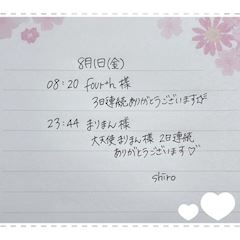 8月1日(金)
08:20 fourth 様
3日連続ありがとうございます
23:44 まりまん 様
大天使まりまん様 2日連続
ありがとうございます♡
shiro